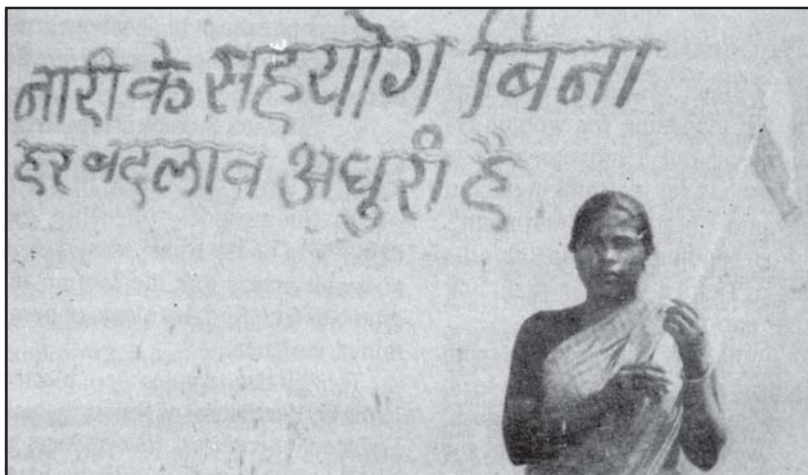 नारी के सहयोग बिना
हर बदलाव अधुरां है